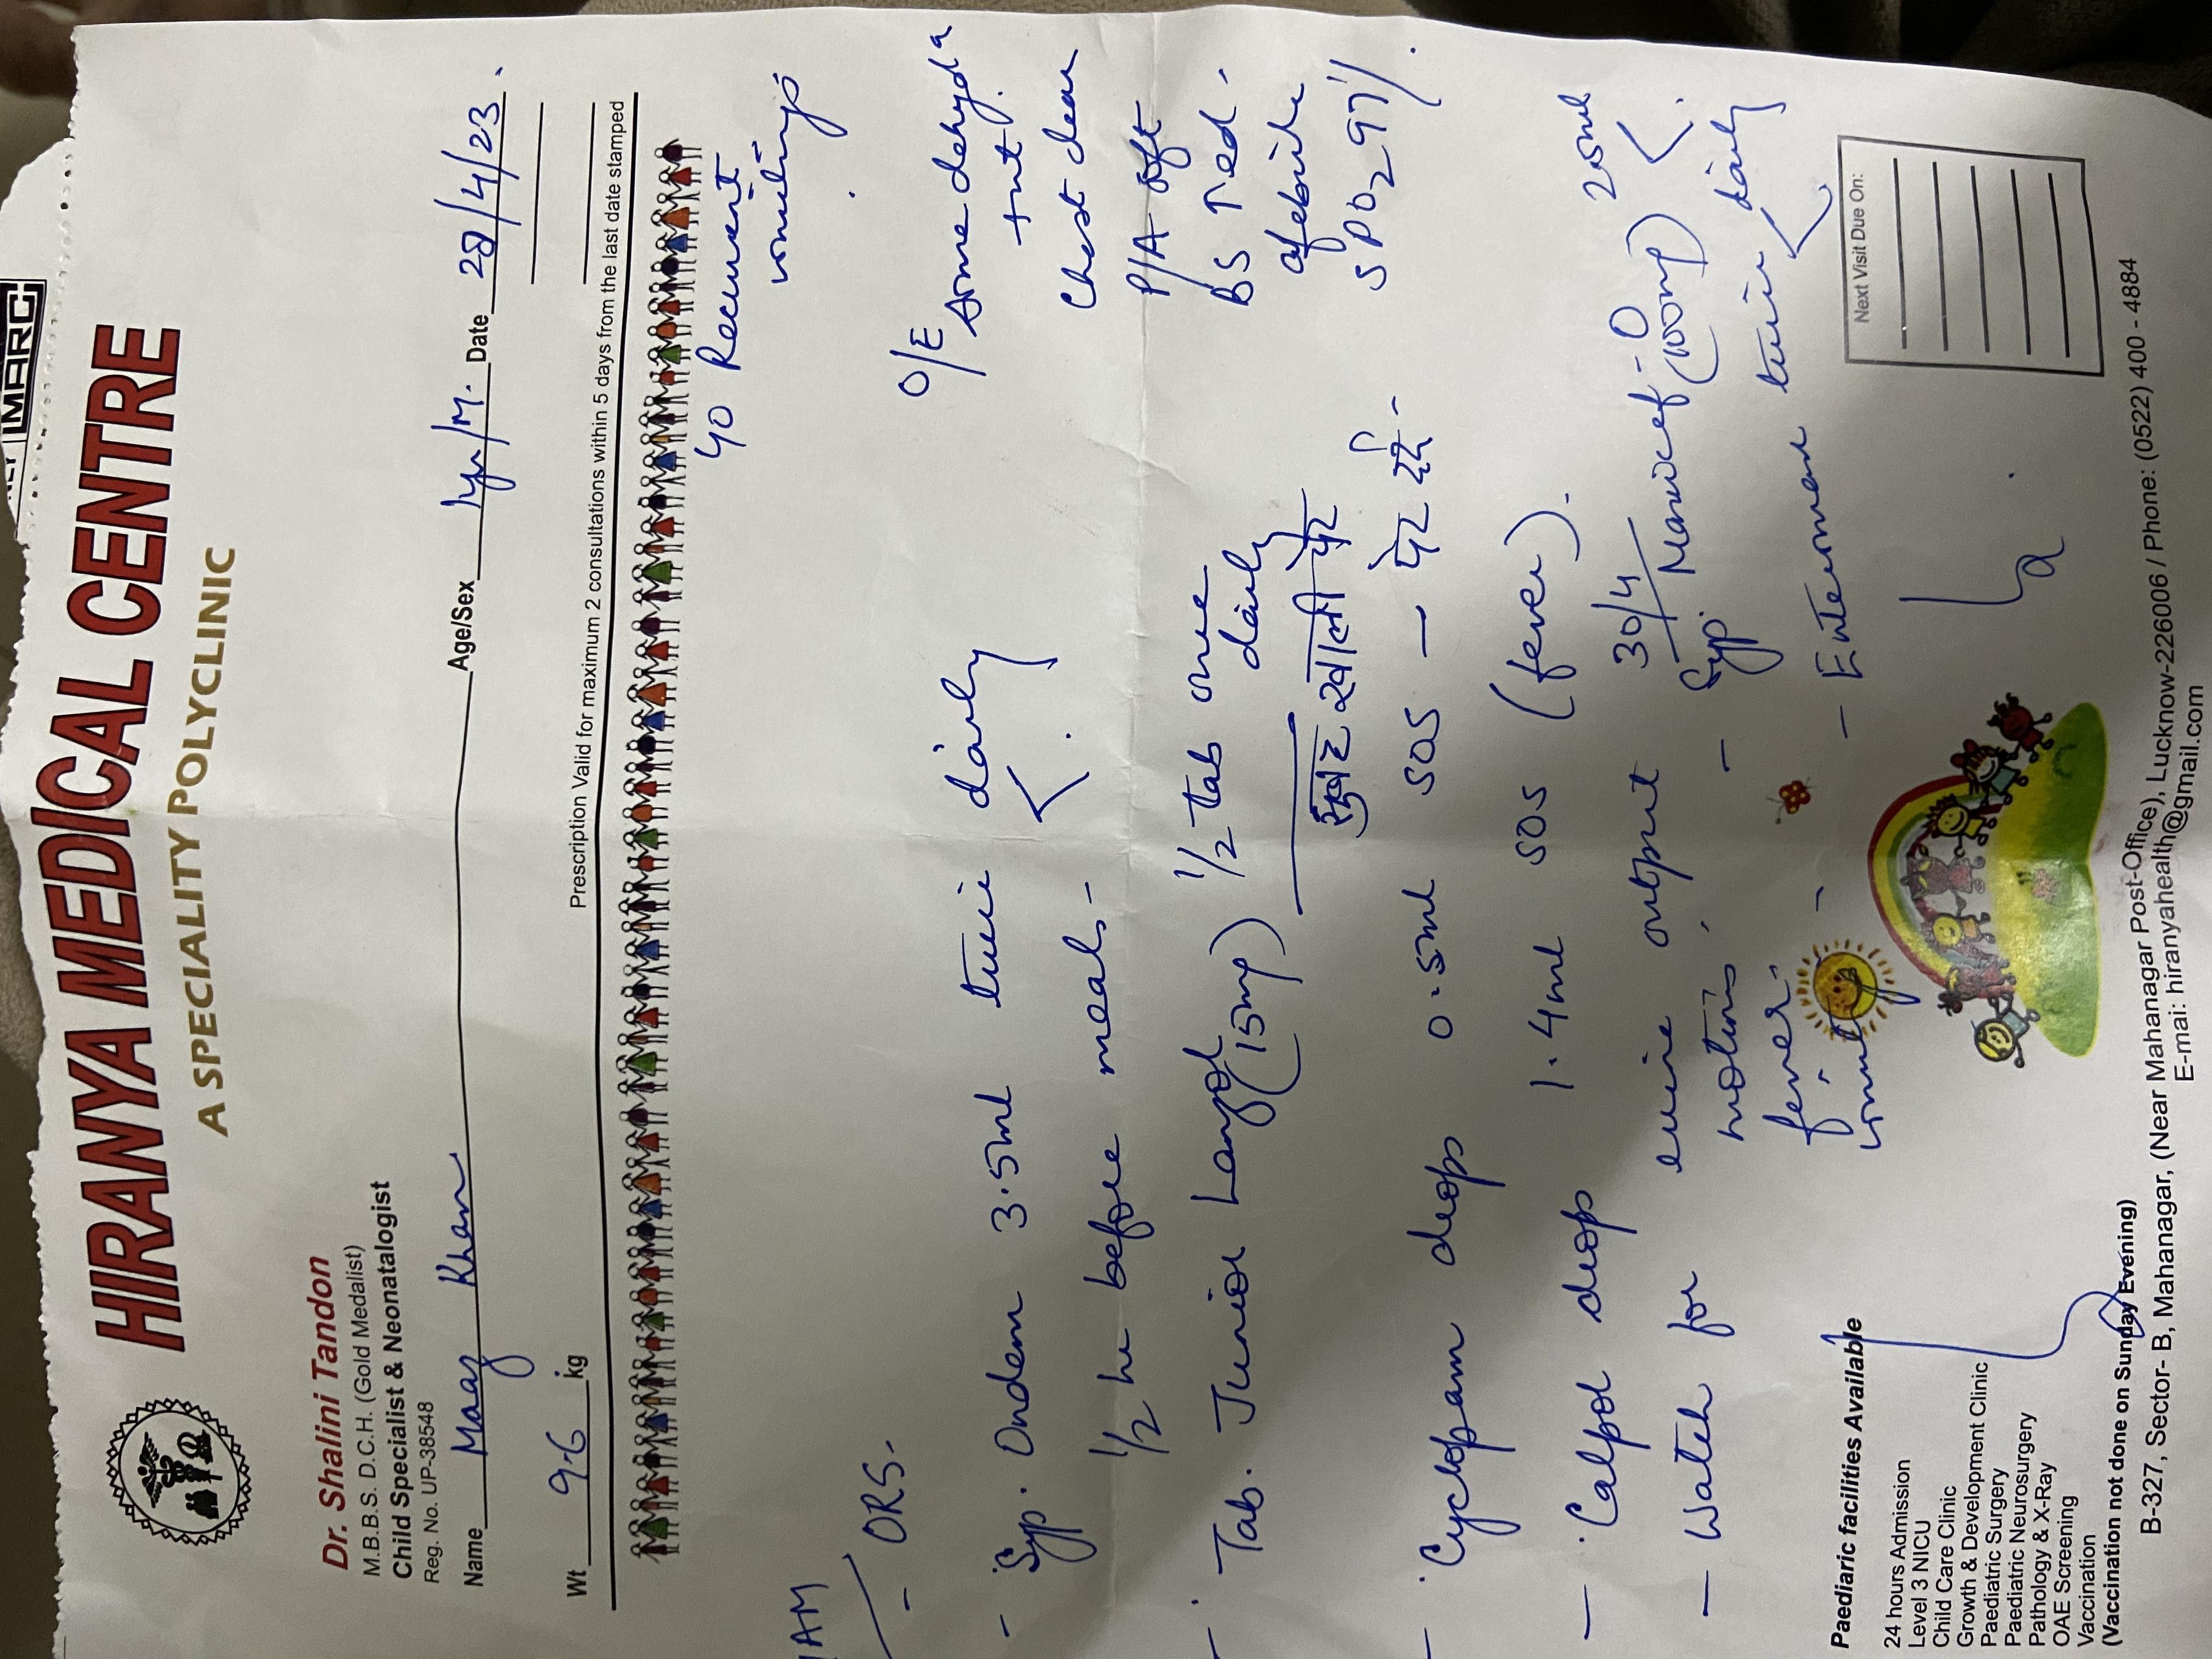 MARC
HIRANYA MEDICAL CENTRE
A SPECIALITY POLYCLINIC
Dr. Shalini Tandon
M.B.B.S. D.C.H. (Gold Medalist)
Child Specialist & Neonatalogist
Reg. No. UP-38548
Name Maaz Khan Age/Sex 1yr/M. Date 28/4/23
Wt 9.6 kg
Prescription Valid for maximum 2 consultations within 5 days from the last date stamped
Recurrent
vomitings
AM
- ORS.
O/E
some dehyd
Chest clear
P/A soft
BS
afebrile
SPO2 97%.
- Syp. Ondem 3.5ml twice daily
1/2 hr before meals -
- Tab. Junior Lanzol 1/2 tab once
(15mg) daily
सुबह खाली पेट
- Cyclopam drops 0.5ml SOS — पेट दर्द -
- Calpol drops 1.4ml SOS (fever).
- Watch for urine output
motions,
fever,
vomit
30/4
- Syp. (100mg)
- twice daily
Next Visit Due On:
Paediaric facilities Available
24 hours Admission
Level 3 NICU
Child Care Clinic
Growth & Development Clinic
Paediatric Surgery
Paediatric Neurosurgery
Pathology & X-Ray
OAE Screening
Vaccination
(Vaccination not done on Sunday Evening)
B-327, Sector- B, Mahanagar, (Near Mahanagar Post-Office), Lucknow-226006 / Phone: (0522) 400 - 4884
E-mai: hiranyahealth@gmail.com